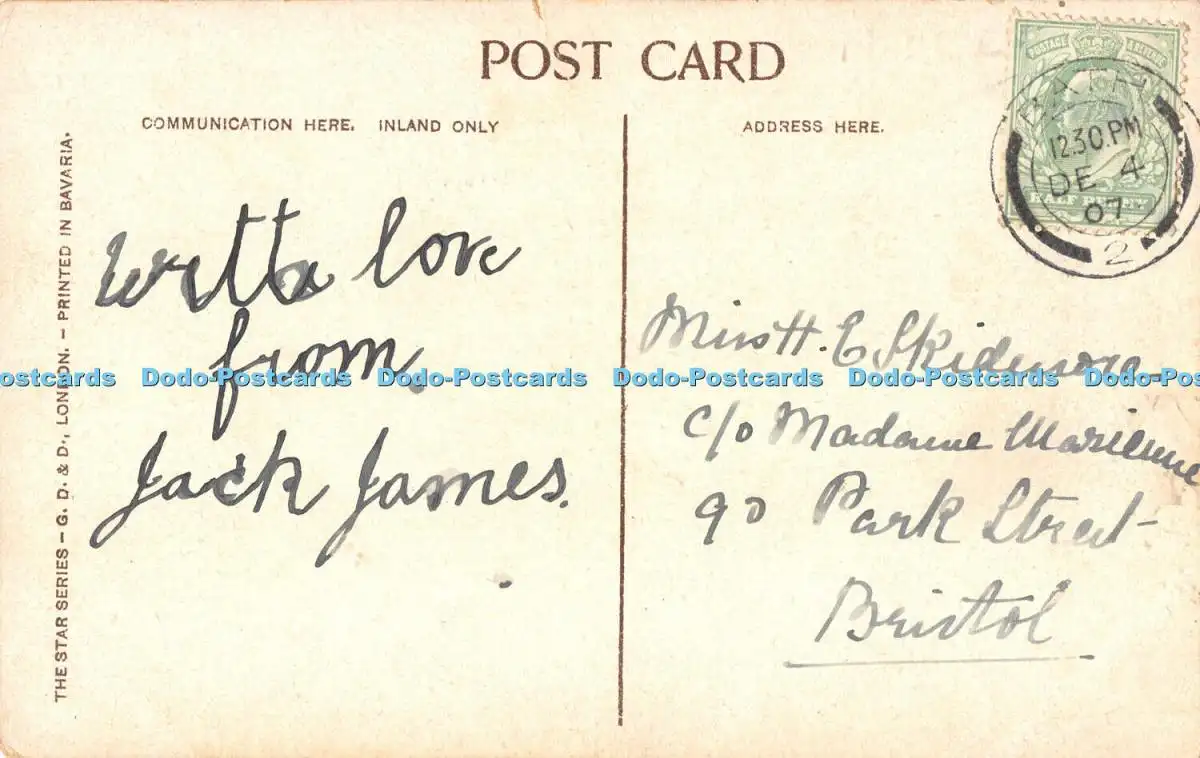 POST CARD
COMMUNICATION HERE. INLAND ONLY
ADDRESS HERE.
THE STAR SERIES – G. D. & D., LONDON. – PRINTED IN BAVARIA.
POSTAGE & REVENUE
HALF PENNY
BATH
12.30.PM
DE 4
07
2
With love
from
Jack James.
Miss H. E Skidmore
c/o Madame
90 Park Street
Bristol
Dodo-Postcards Dodo-Postcards Dodo-Postcards Dodo-Postcards Dodo-Postcards